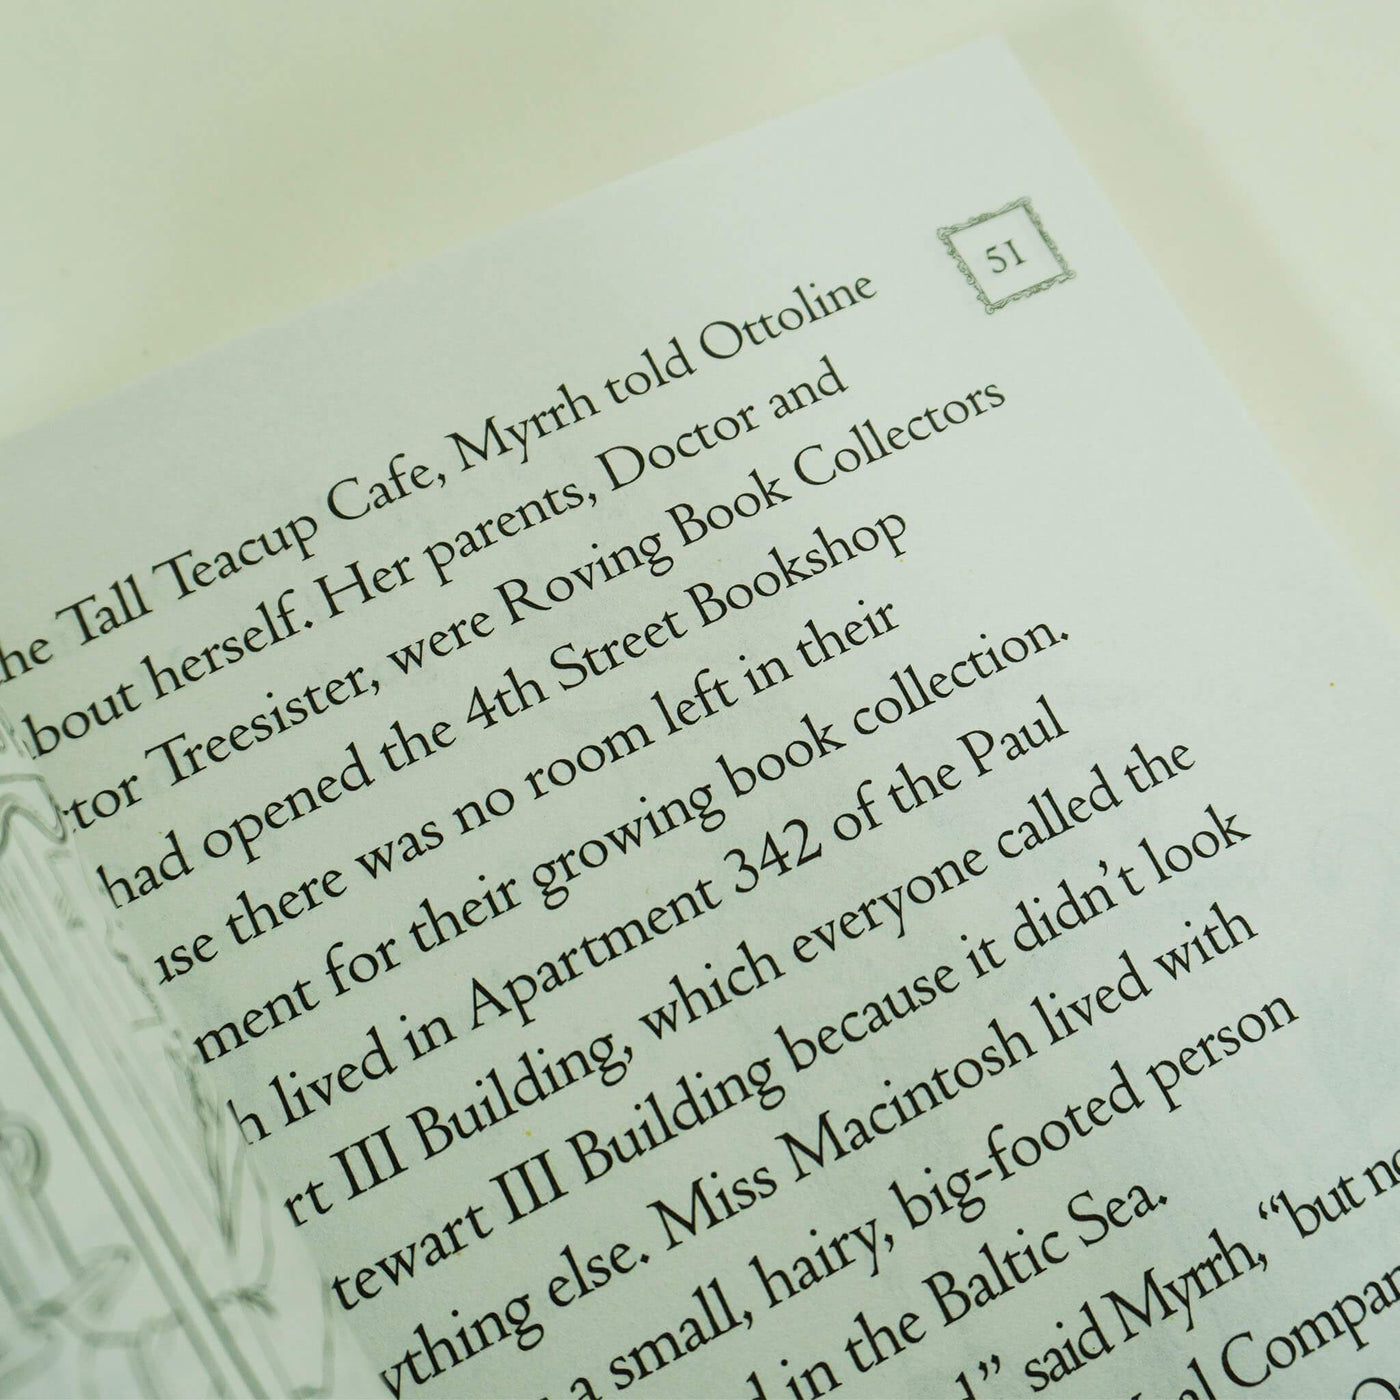 51
he Tall Teacup Cafe, Myrrh told Ottoline
bout herself. Her parents, Doctor and
tor Treesister, were Roving Book Collectors
had opened the 4th Street Bookshop
use there was no room left in their
ment for their growing book collection.
h lived in Apartment 342 of the Paul
rt III Building, which everyone called the
tewart III Building because it didn't look
ything else. Miss Macintosh lived with
a small, hairy, big-footed person
in the Baltic Sea.
” said Myrrh, “but
Compan